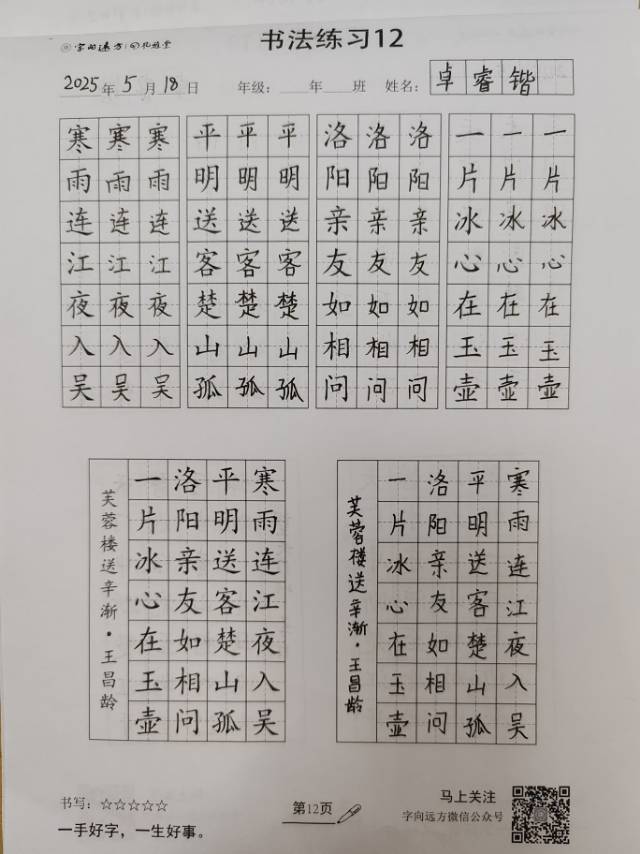 字向远方
书法练习12
2025年5月18日 年级:____年____班 姓名: 卓睿锴
寒寒寒 平平平 洛洛洛 一一一
雨雨雨 明明明 阳阳阳 片片片
连连连 送送送 亲亲亲 冰冰冰
江江江 客客客 友友友 心心心
夜夜夜 楚楚楚 如如如 在在在
入入入 山山山 相相相 玉玉玉
吴吴吴 孤孤孤 问问问 壶壶壶
寒雨连江夜入吴
平明送客楚山孤
洛阳亲友如相问
一片冰心在玉壶
芙蓉楼送辛渐·王昌龄
寒雨连江夜入吴
平明送客楚山孤
洛阳亲友如相问
一片冰心在玉壶
芙蓉楼送辛渐·王昌龄
书写:☆☆☆☆☆
一手好字,一生好事。
第12页
马上关注
字向远方微信公众号